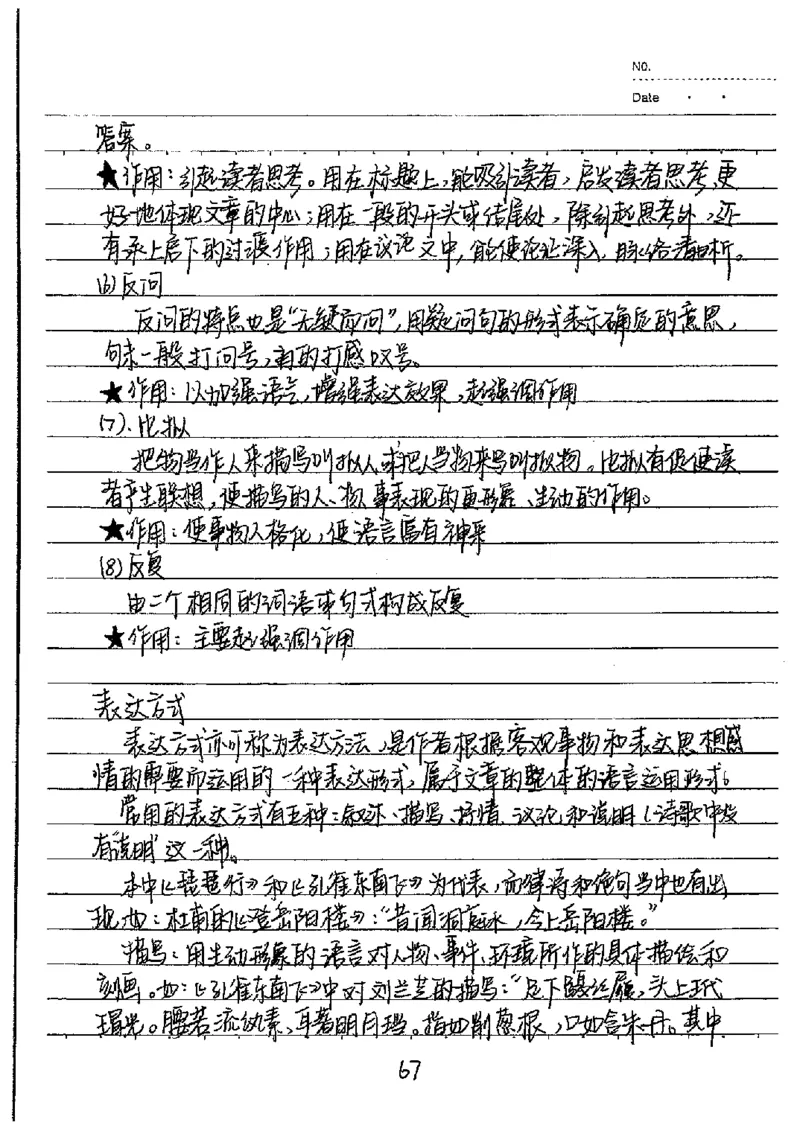 No.
Date
答案。
★作用：引起读者思考。用在标题上，能吸引读者，启发读者思考，更
好地体现文章的中心；用在一段的开头或结尾处，除引起思考外，还
有承上启下的过渡作用；用在议论文中，能使论证深入，脉络清晰。
(6)反问
反问的特点也是“无疑而问”，用疑问句的形式表示确定的意思，
句末一般打问号，有的打感叹号。
★作用：以加强语气，增强表达效果，起强调作用
(7).比拟
把物当作人来描写叫拟人，或把人当物来写叫拟物。比拟有促使读
者产生联想，使描写的人、物、事表现的更形象、生动的作用。
★作用：使事物人格化，使语言富有神采
(8)反复
由二个相同的词语或句式构成反复
★作用：主要起强调作用
表达方式
表达方式亦可称为表达方法，是作者根据客观事物和表达思想感
情的需要而运用的一种表达形式，属于文章的整体的语言运用形式。
常用的表达方式有五种：叙述、描写、抒情、议论、和说明（诗歌中没
有“说明”这一种。
本中《琵琶行》和《孔雀东南飞》为代表，而律诗和绝句当中也有出
现，如：杜甫的《登岳阳楼》：“昔闻洞庭水，今上岳阳楼。”
描写：用生动形象的语言对人物、事件、环境所作的具体描绘和
刻画。如：《孔雀东南飞》中对刘兰芝的描写：“足下蹑丝履，头上玳
瑁光。腰若流纨素，耳著明月珰。指如削葱根，口如含朱丹。其中
67